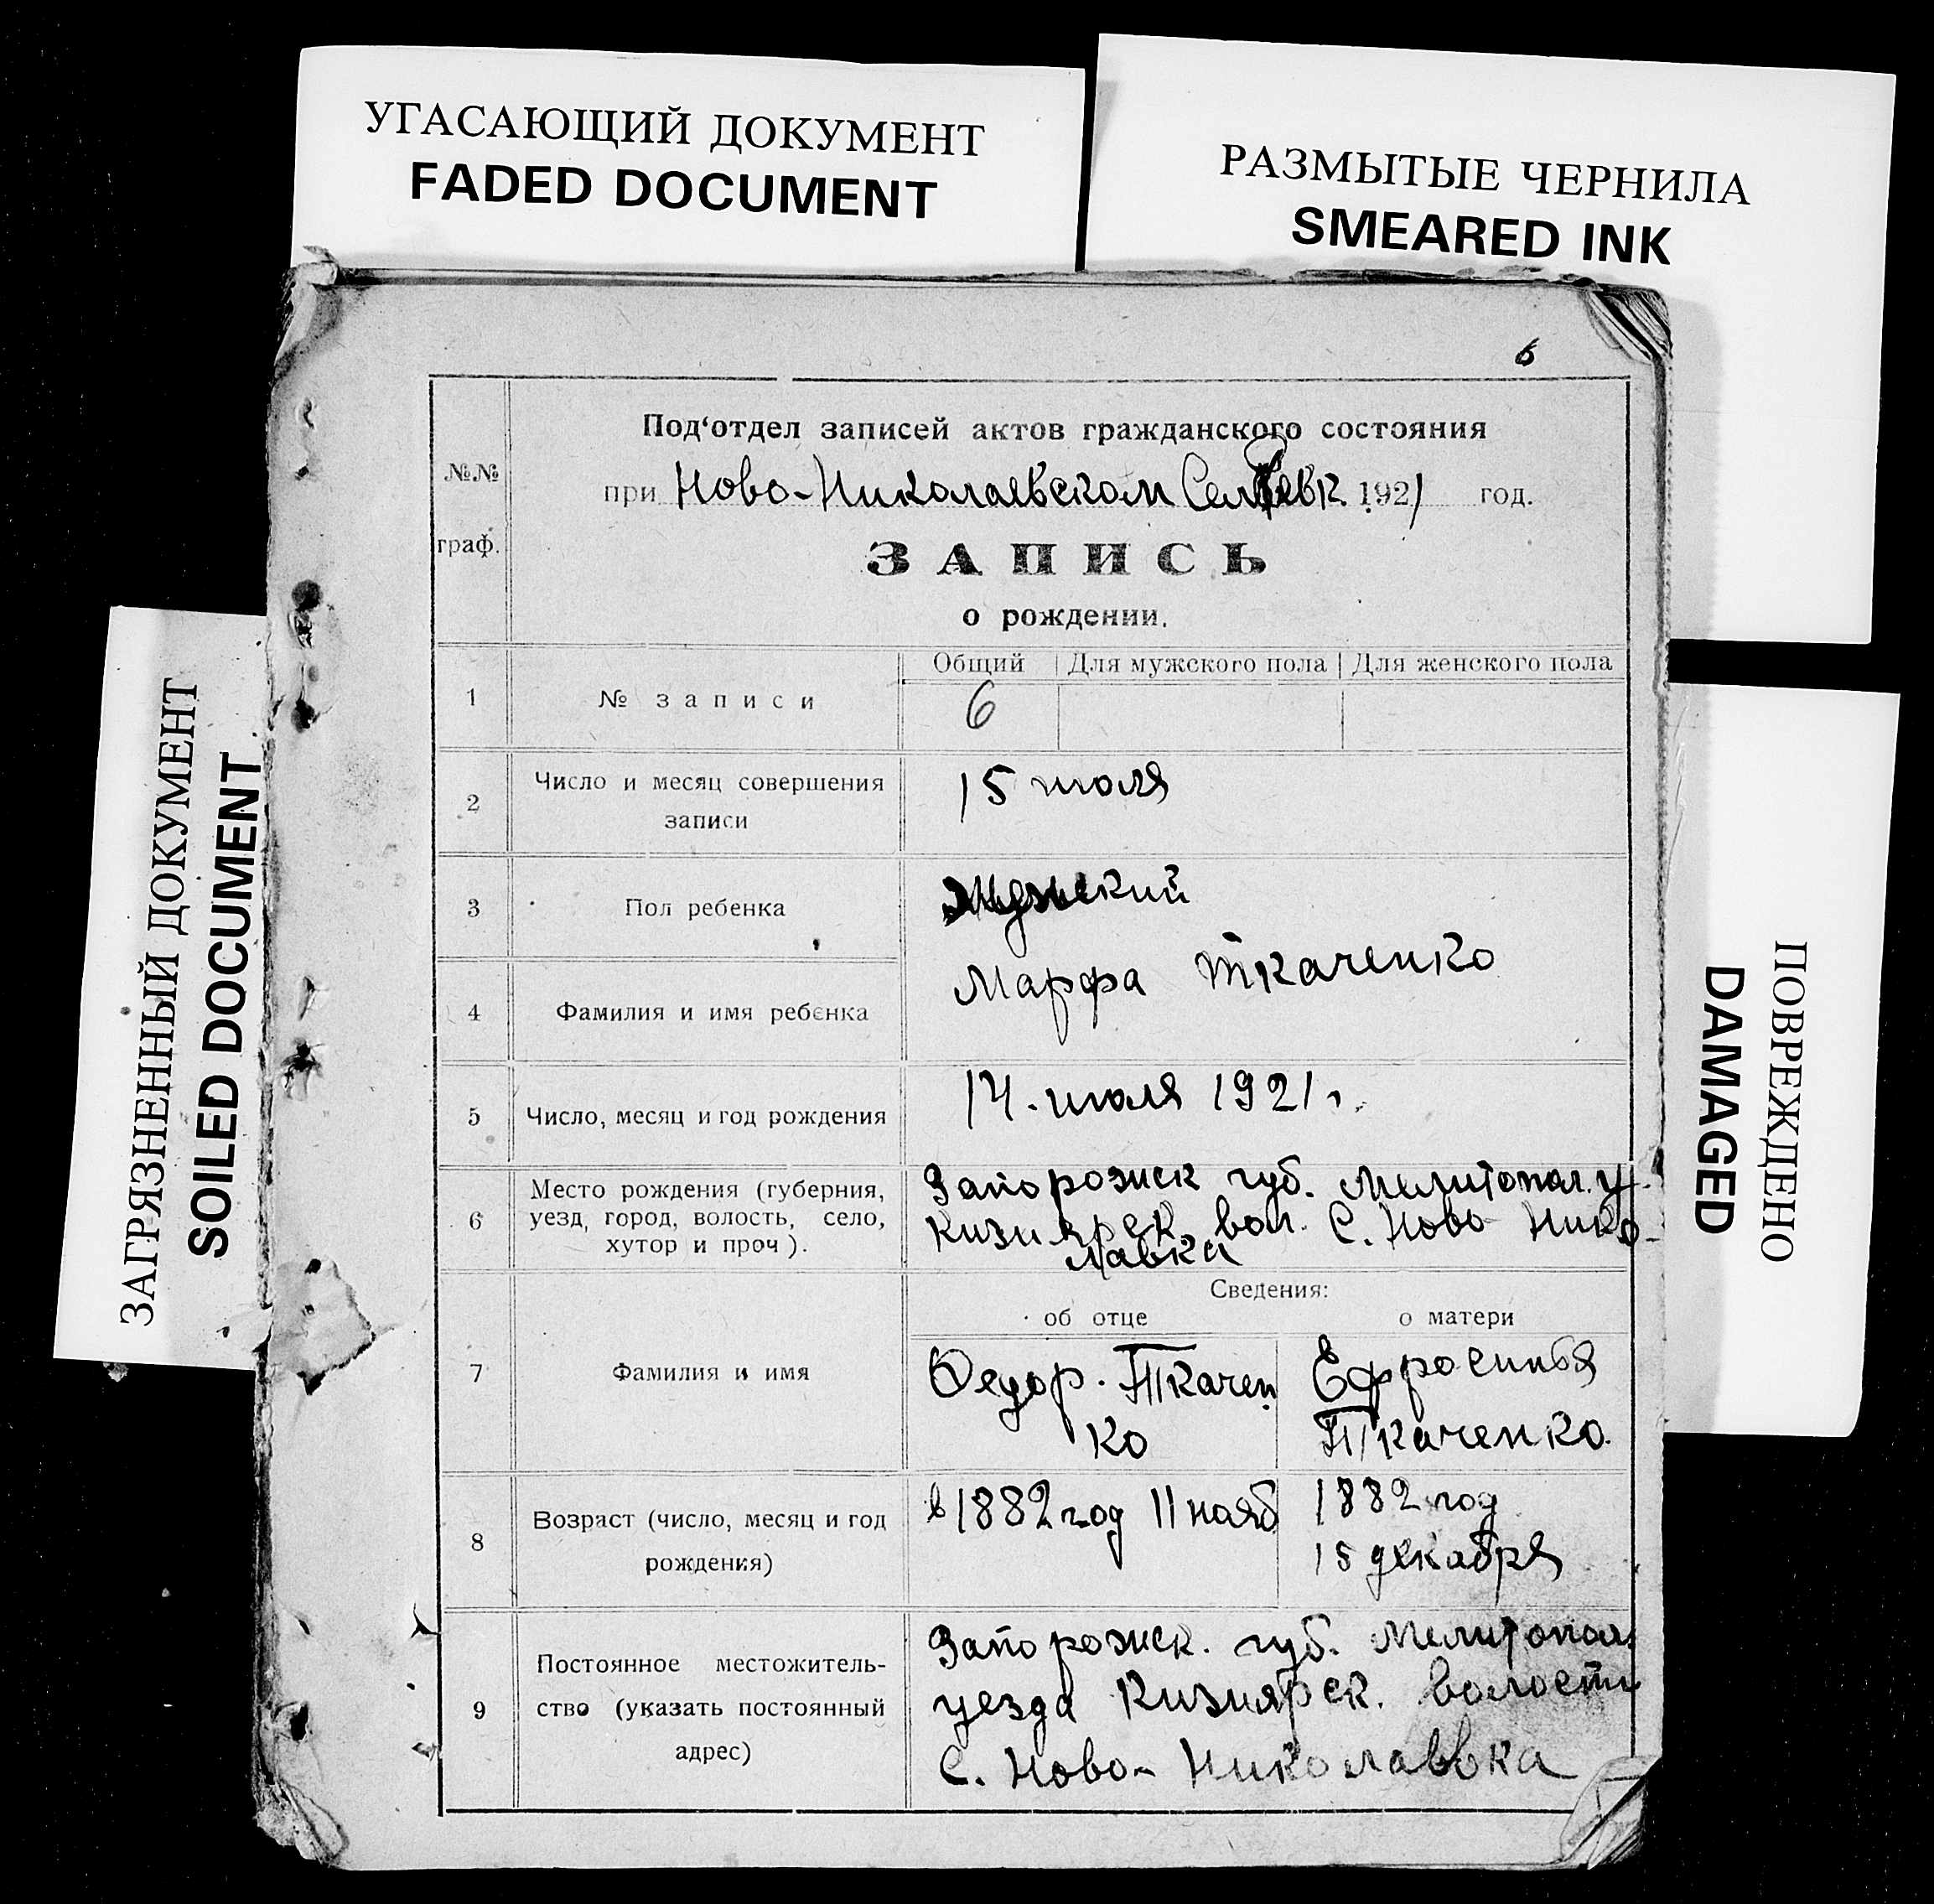 УГАСАЮЩИЙ ДОКУМЕНТ
FADED DOCUMENT
РАЗМЫТЫЕ ЧЕРНИЛА
SMEARED INK
ЗАГРЯЗНЕННЫЙ ДОКУМЕНТ
SOILED DOCUMENT
ПОВРЕЖДЕНО
DAMAGED
6
№№
граф.
Под‘отдел записей актов гражданского состояния
при Ново-Николаевском 1921 год.
ЗАПИСЬ
о рождении.
Общий Для мужского пола Для женского пола
1 № записи 6
2 Число и месяц совершения
записи
15 июля
3 Пол ребенка
4 Фамилия и имя ребенка
Марфа Ткаченко
5 Число, месяц и год рождения 14. июля 1921 г.
6 Место рождения (губерния,
уезд, город, волость, село,
хутор и проч).
Запорожск губ. Мелитопол. у.
Кизиярск вол. С. Ново Нико-
лавка
Сведения:
об отце о матери
7 Фамилия и имя
Федор. Ткачен
ко
Ефросинья
Ткаченко.
8 Возраст (число, месяц и год
рождения)
в 1882 год 11 нояб
1882 год
15 декабря
9 Постоянное местожитель-
ство (указать постоянный
адрес)
Запорожск. губ. Мелитопол.
уезда Кизиярск. волости
С. Ново-Николавка